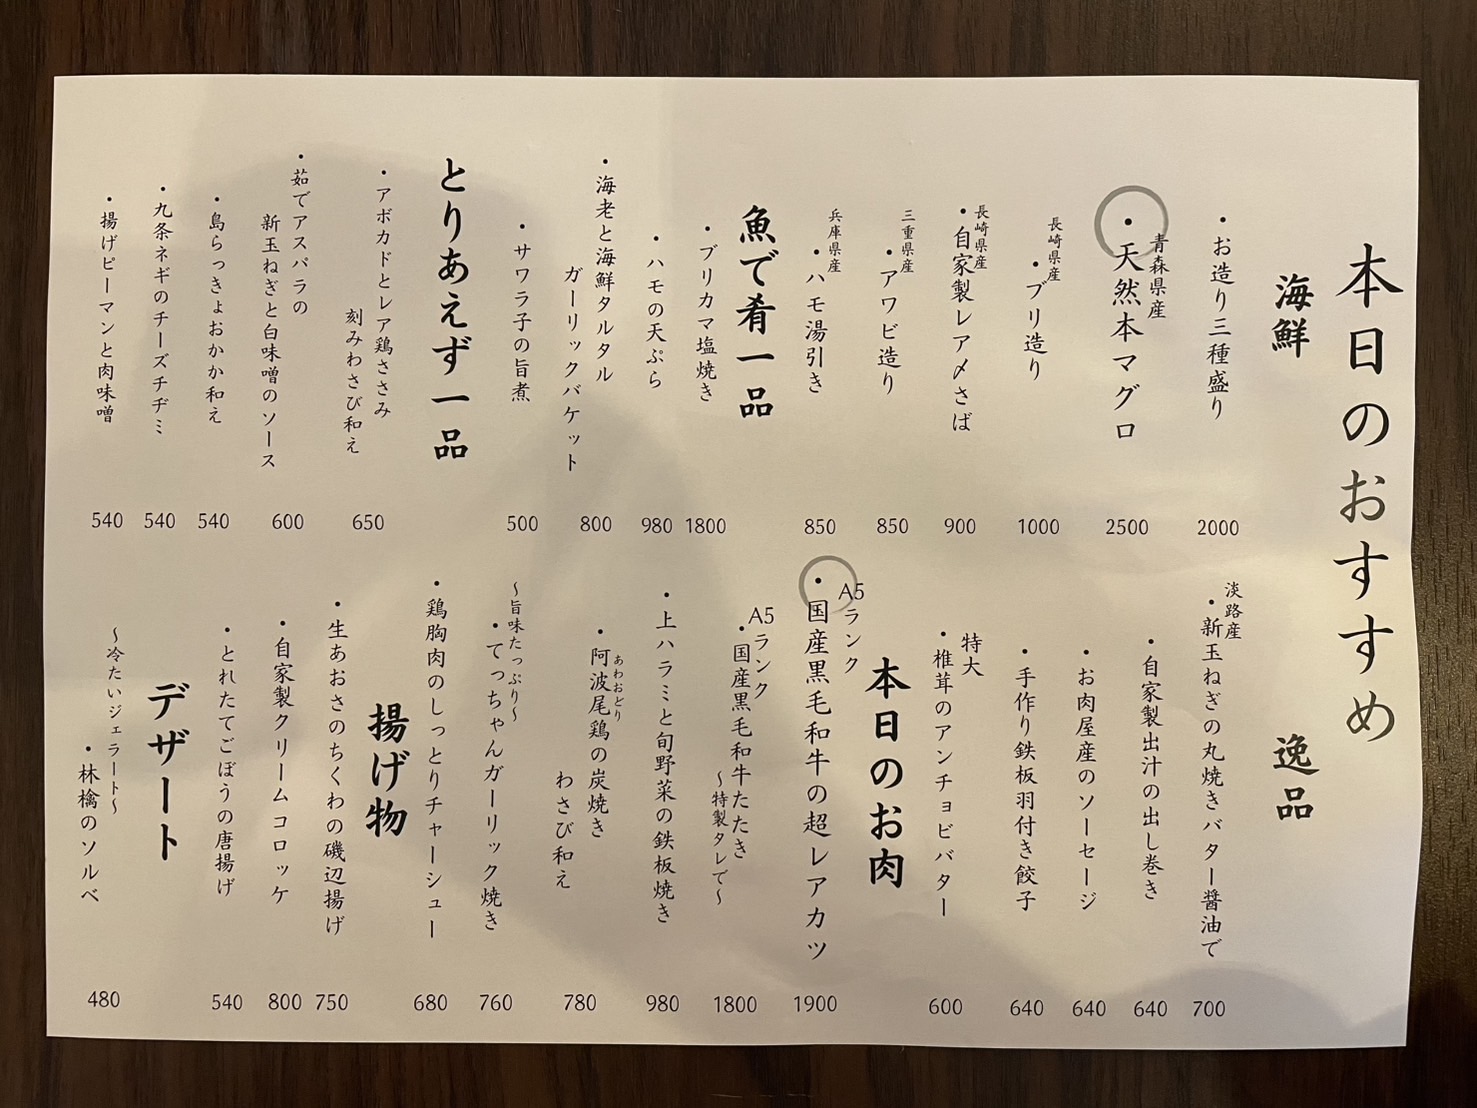 本日のおすすめ
海鮮
・お造り三種盛り 2000
青森県産
・天然本マグロ 2500
長崎県産
・ブリ造り 1000
長崎県産
・自家製レア〆さば 900
三重県産
・アワビ造り 850
兵庫県産
・ハモ湯引き 850
魚で肴一品
・ブリカマ塩焼き 1800
・ハモの天ぷら 980
・海老と海鮮タルタル
ガーリックバケット 800
・サワラ子の旨煮 500
とりあえず一品
・アボカドとレア鶏ささみ
刻みわさび和え 650
・茹でアスパラの
新玉ねぎと白味噌のソース 600
・島らっきょおかか和え 540
・九条ネギのチーズチヂミ 540
・揚げピーマンと肉味噌 540
逸品
淡路産
・新玉ねぎの丸焼きバター醤油で 700
・自家製出汁の出し巻き 640
・お肉屋産のソーセージ 640
・手作り鉄板羽付き餃子 640
特大
・椎茸のアンチョビバター 600
本日のお肉
A5ランク
・国産黒毛和牛の超レアカツ 1900
A5ランク
・国産黒毛和牛たたき
〜特製タレで〜 1800
・上ハラミと旬野菜の鉄板焼き 980
あわおどり
・阿波尾鶏の炭焼き
わさび和え 780
〜旨味たっぷり〜
・てっちゃんガーリック焼き 760
・鶏胸肉のしっとりチャーシュー 680
揚げ物
・生あおさのちくわの磯辺揚げ 750
・自家製クリームコロッケ 800
・とれたてごぼうの唐揚げ 540
デザート
〜冷たいジェラート〜
・林檎のソルベ 480